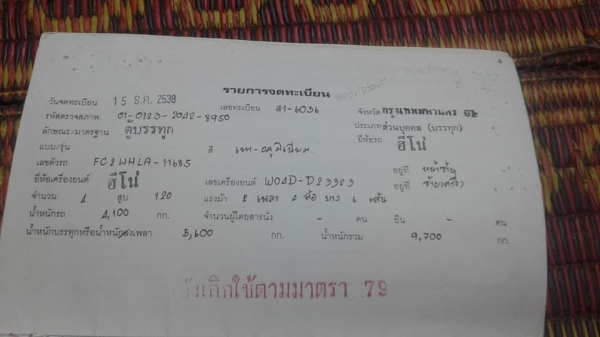 รายการจดทะเบียน
วันจดทะเบียน 15 ธ.ค. 2538 เลขทะเบียน 91-6036 จังหวัด กรุงเทพมหานคร
รหัสตรวจสภาพ 01-0123-2042-8950 ประเภท ส่วนบุคคล (บรรทุก)
ลักษณะ/มาตรฐาน ตู้บรรทุก ยี่ห้อรถ ฮีโน่
แบบ/รุ่น สี เทา-อลูมิเนียม
เลขตัวรถ FC2WHLA-11685 อยู่ที่
ยี่ห้อเครื่องยนต์ ฮีโน่ เลขเครื่องยนต์ WO4D-D23323 อยู่ที่ ซ้ายเครื่อง
จำนวน 4 สูบ 120 แรงม้า 2 เพลา 4 ล้อ ยาง 6 เส้น
น้ำหนักรถ 4,100 กก. จำนวนผู้โดยสารนั่ง - คน ยืน - คน
น้ำหนักบรรทุกหรือน้ำหนักลงเพลา 5,600 กก. น้ำหนักรวม 9,700 กก.
เลิกใช้ตามมาตรา 79